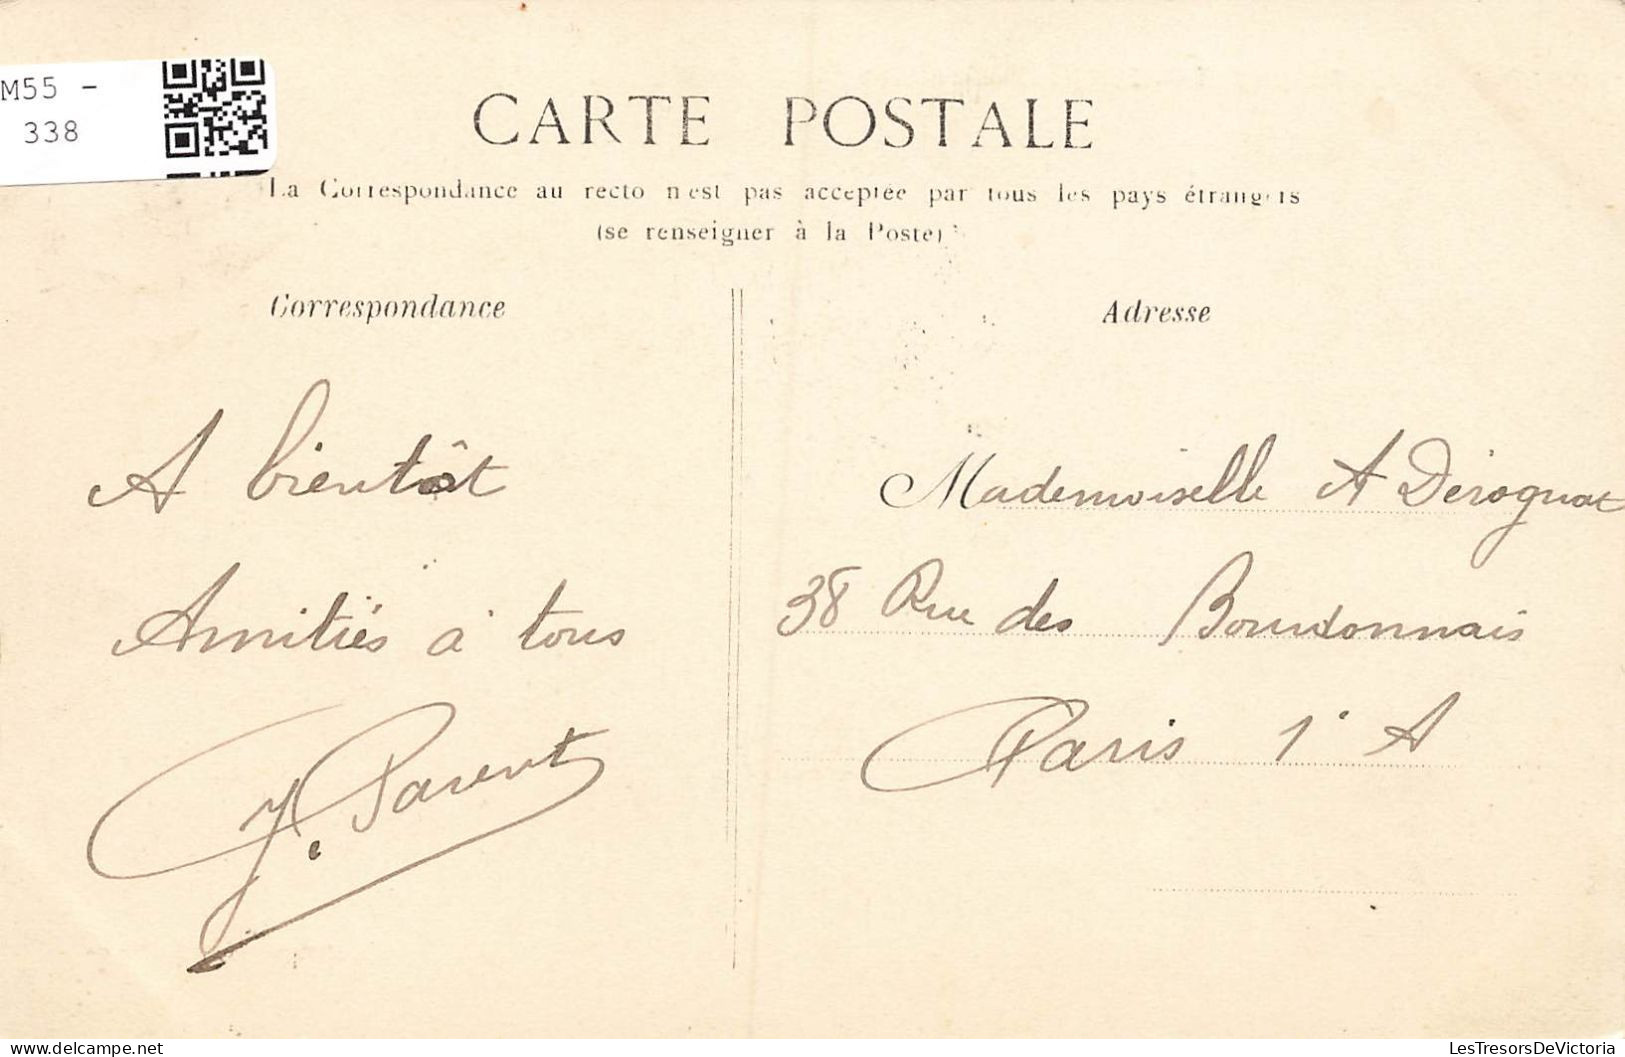 M55 -
338
CARTE POSTALE
La Correspondance au recto n'est pas acceptée par tous les pays étrangers
(se renseigner à la Poste)
Correspondance
Adresse
A bientôt
Amitiés à tous
J. Parent
Mademoiselle A Dérognat
38 Rue des Bourdonnais
Paris 1° A
LesTresorsDeVictoria